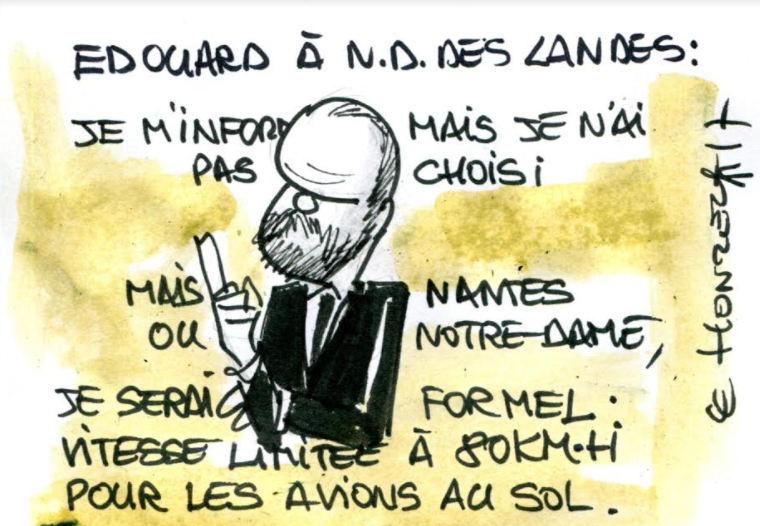 EDOUARD À N.D. DES LANDES:
JE M'INFORM MAIS JE N'AI
PAS CHOISI
MAIS NANTES
OU NOTRE-DAME,
JE SERAI FORMEL.
VITESSE LIMITEE À 80KM.H
POUR LES AVIONS AU SOL.